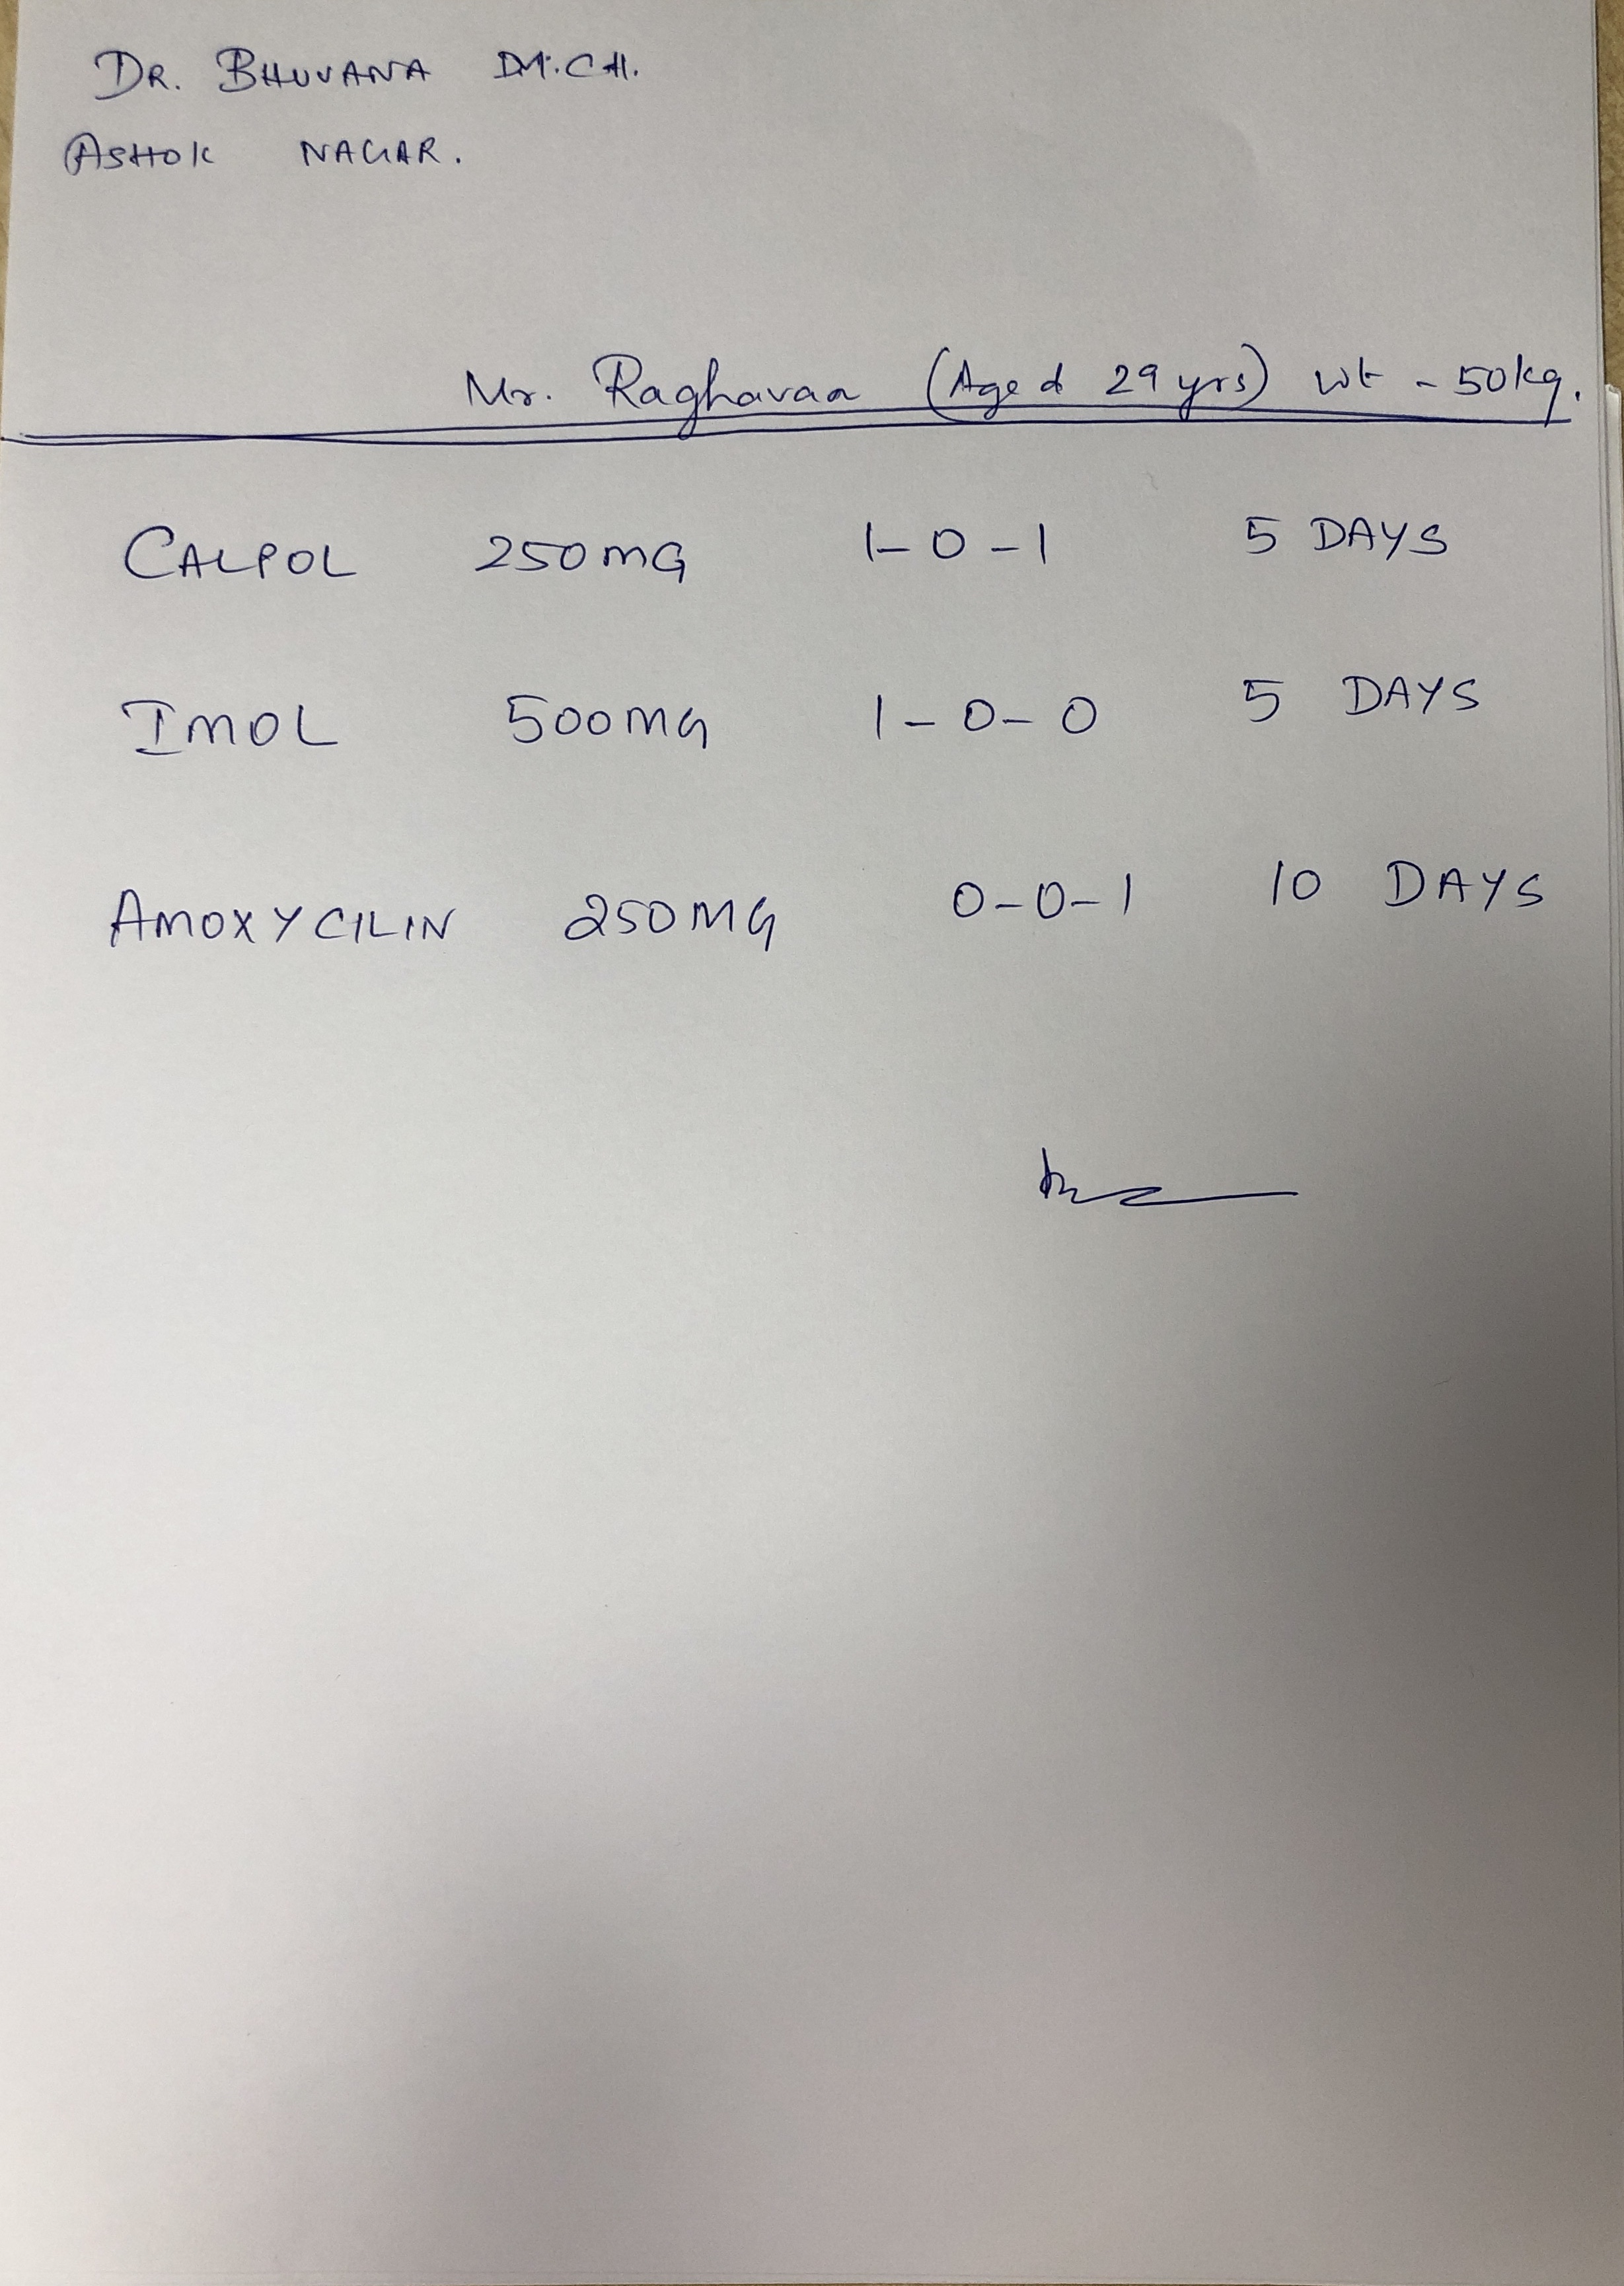 DR. BHUVANA D.M.CH.
ASHOK NAGAR.
Mr. Raghavaa (Aged 29 yrs) wt - 50kg.
CALPOL 250MG 1-0-1 5 DAYS
IMOL 500MG 1-0-0 5 DAYS
AMOXYCILIN 250MG 0-0-1 10 DAYS